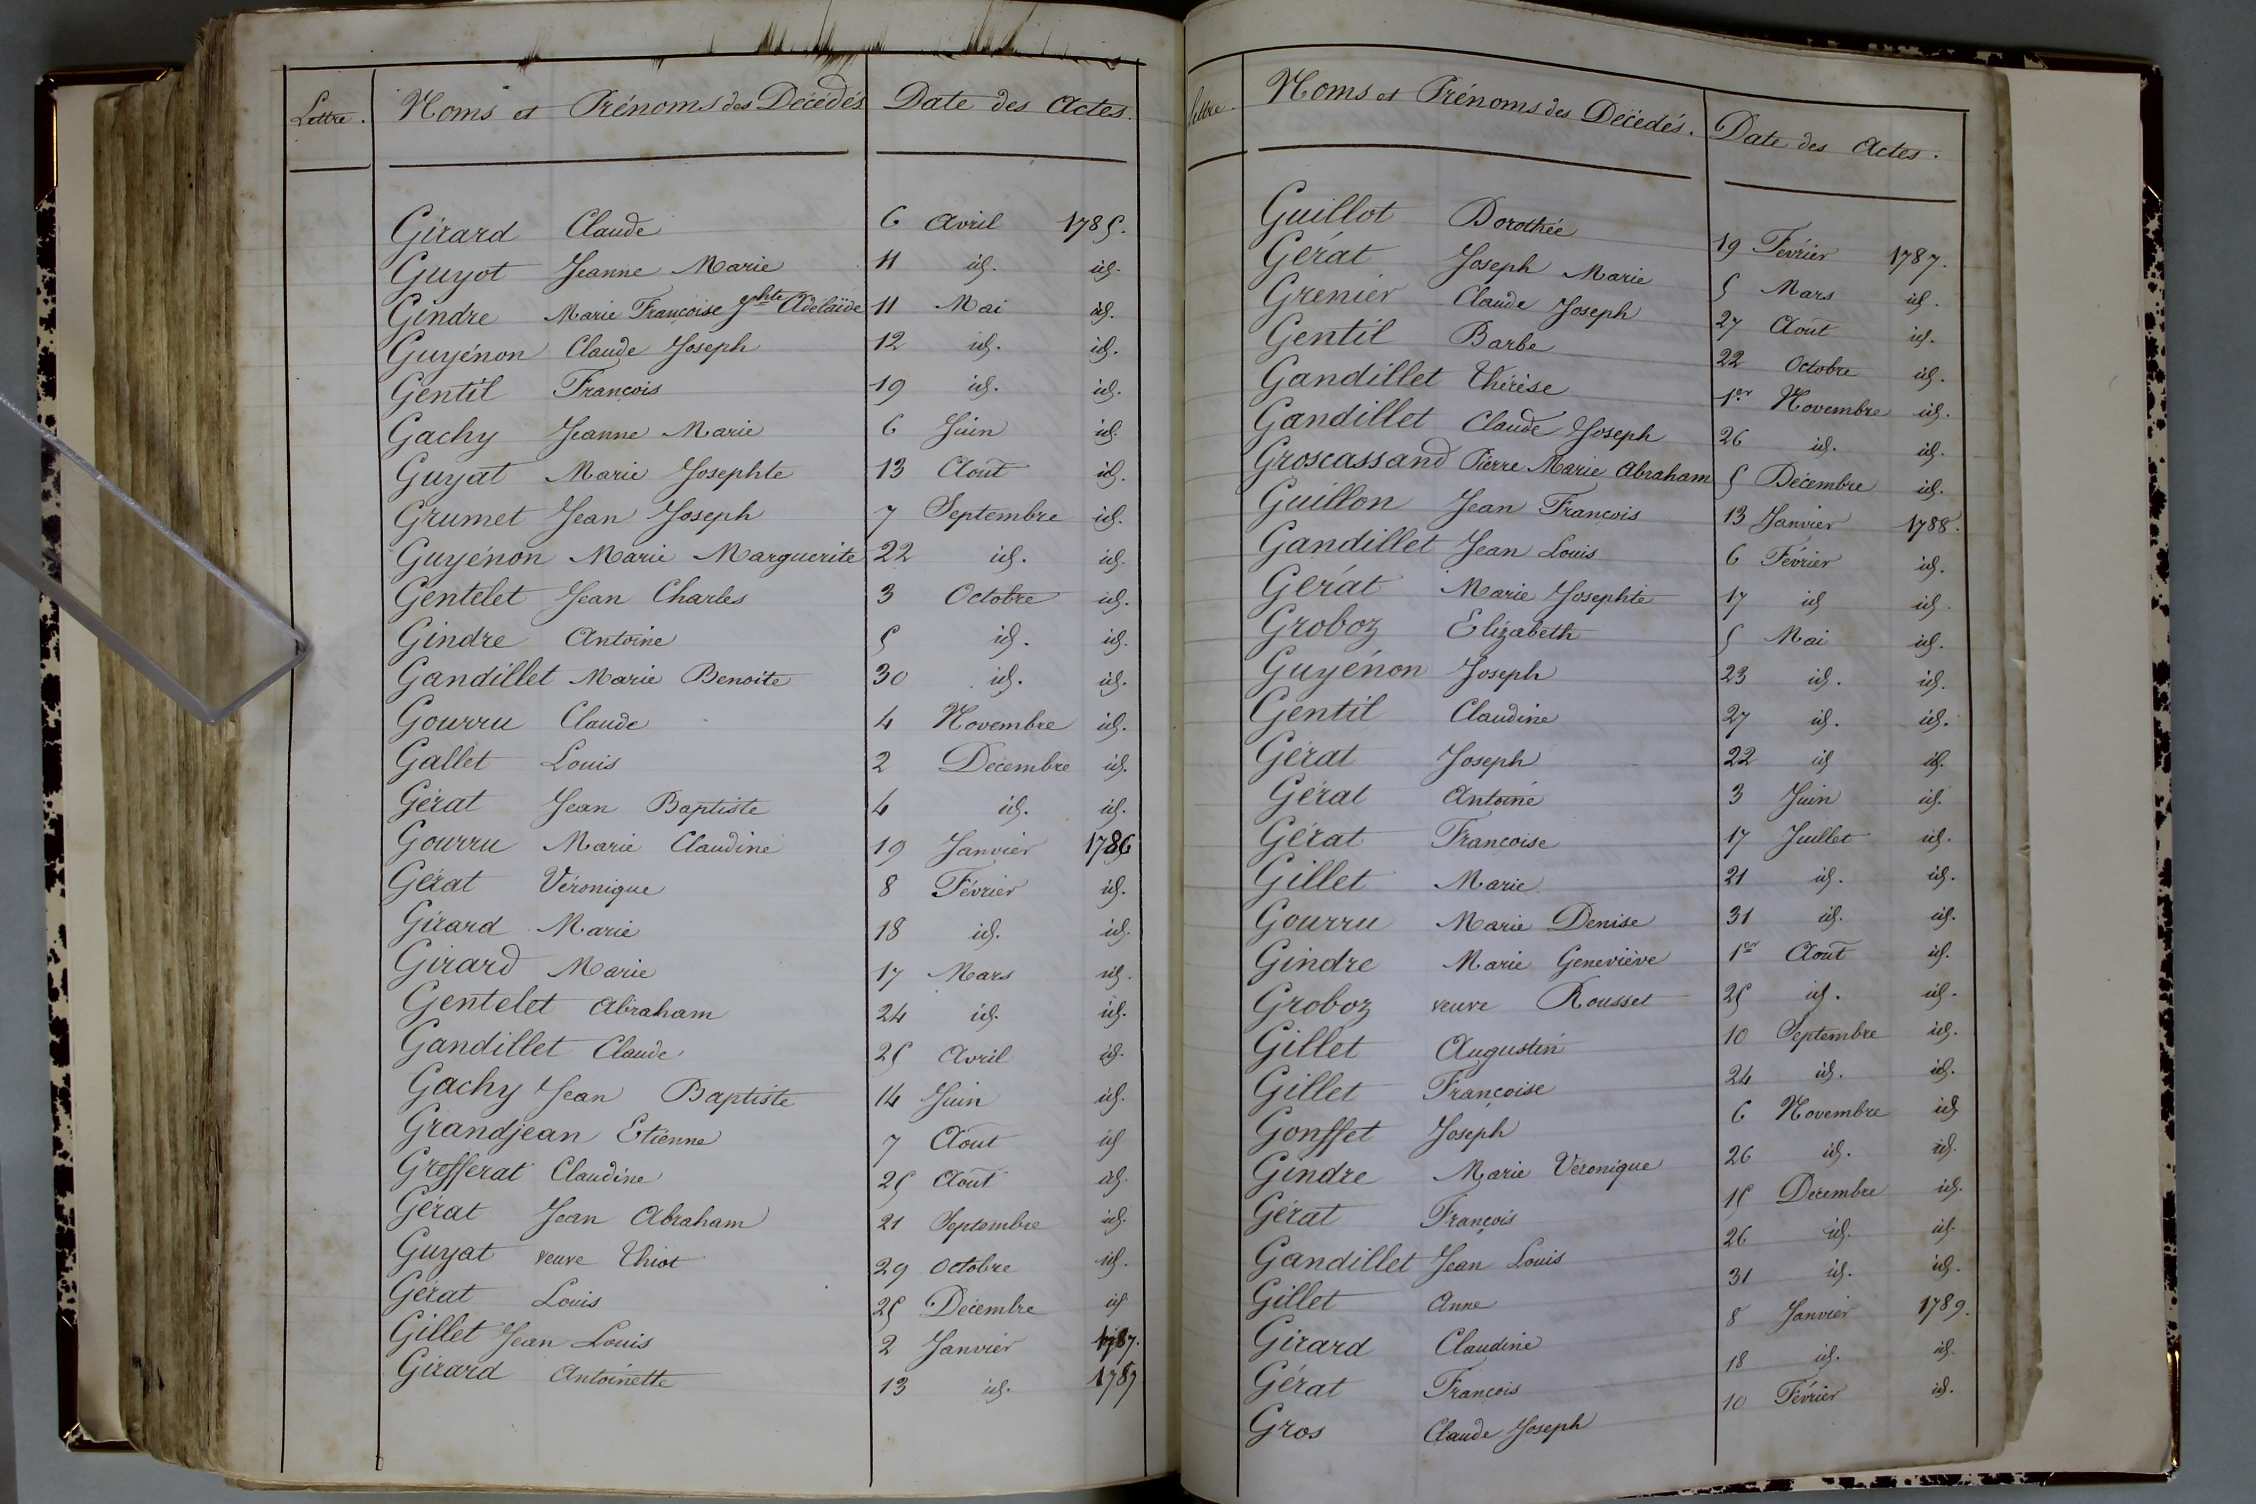 Lettre. Noms et Prénoms des Décédés Date des Actes.
Girard Claude 6 Avril 1785.
Guyot Jeanne Marie 11 id. id.
Gindre Marie Françoise Jphte Adelaïde 11 Mai id.
Guyénon Claude Joseph 12 id. id.
Gentil François 19 id. id.
Gachy Jeanne Marie 6 Juin id.
Guyat Marie Josephte 13 Aout id.
Grumet Jean Joseph 7 Septembre id.
Guyénon Marie Marguerite 22 id. id.
Gentelet Jean Charles 3 Octobre id.
Gindre Antoine 5 id. id.
Gandillet Marie Benoite 30 id. id.
Gourru Claude 4 Novembre id.
Gallet Louis 2 Décembre id.
Gérat Jean Baptiste 4 id. id.
Gourru Marie Claudine 19 Janvier 1786
Gérat Véronique 8 Février id.
Girard Marie 18 id. id.
Girard Marie 17 Mars id.
Gentelet Abraham 24 id. id.
Gandillet Claude 25 Avril id.
Gachy Jean Baptiste 14 Juin id.
Grandjean Etienne 7 Aout id
Grefferat Claudine 25 Aout id.
Gérat Jean Abraham 21 Septembre id.
Guyat veuve Thiot 29 Octobre id.
Gérat Louis 25 Décembre id
Gillet Jean Louis 2 Janvier 1787.
Girard Antoinette 13 id. 1787
Lettre. Noms et Prénoms des Décédés. Date des Actes.
Guillot Dorothée 19 Février 1787.
Gérat Joseph Marie 5 Mars id.
Grenier Claude Joseph 27 Aout id.
Gentil Barbe 22 Octobre id.
Gandillet Thérèse 1er Novembre id.
Gandillet Claude Joseph 26 id. id.
Groscassand Pierre Marie Abraham 5 Décembre id.
Guillon Jean François 13 Janvier 1788.
Gandillet Jean Louis 6 Février id.
Gérat Marie Josephte 17 id id.
Groboz Elizabeth 5 Mai id.
Guyénon Joseph 23 id. id.
Gentil Claudine 27 id. id.
Gérat Joseph 22 id id.
Gérat Antoine 3 Juin id.
Gérat Françoise 17 Juillet id.
Gillet Marie 21 id. id.
Gourru Marie Denise 31 id. id.
Gindre Marie Geneviève 1er Aout id.
Groboz veuve Rousset 25 id. id.
Gillet Augustin 10 Septembre id.
Gillet Françoise 24 id. id.
Gonffet Joseph 6 Novembre id
Gindre Marie Véronique 26 id. id.
Gérat François 15 Décembre id.
Gandillet Jean Louis 26 id. id.
Gillet Anne 31 id. id.
Girard Claudine 8 Janvier 1789.
Gérat François 18 id. id.
Gros Claude Joseph 10 Février id.